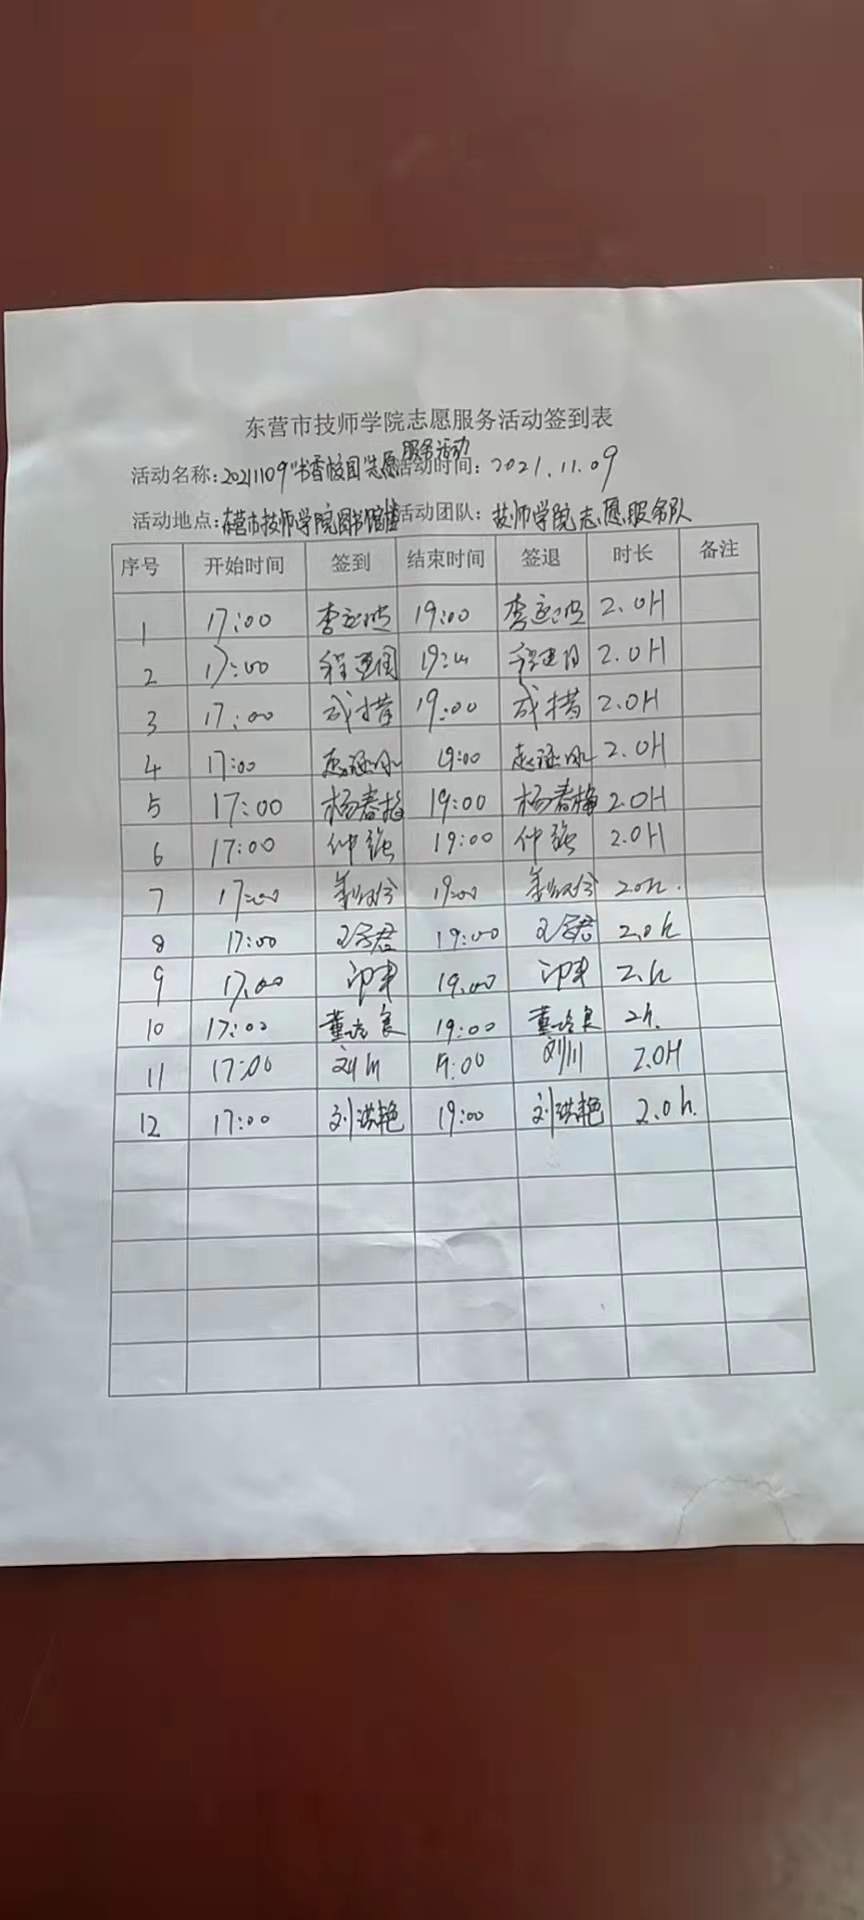 东营市技师学院志愿服务活动签到表
活动名称：20211109“书香校园”志愿服务活动 活动时间：2021.11.09
活动地点：东营市技师学院图书馆 活动团队：技师学院志愿服务队
序号 开始时间 签到 结束时间 签退 时长 备注
1 17:00 李 19:00 李 2.0H
2 17:00 程建国 19: 程建国 2.0H
3 17:00 成措 19:00 成措 2.0H
4 17:00 赵 19:00 赵 2.0H
5 17:00 杨春梅 19:00 杨春梅 2.0H
6 17:00 仲强 19:00 仲强 2.0H
7 17:00 19:00 2.0h.
8 17:00 王 君 19:00 王 君 2.0h
9 17.00 印来 19.00 印来 2.h
10 17:00 董 良 19:00 董 良 2h.
11 17:00 刘川 19:00 刘川 2.0H
12 17:00 刘洪艳 19:00 刘洪艳 2.0h.